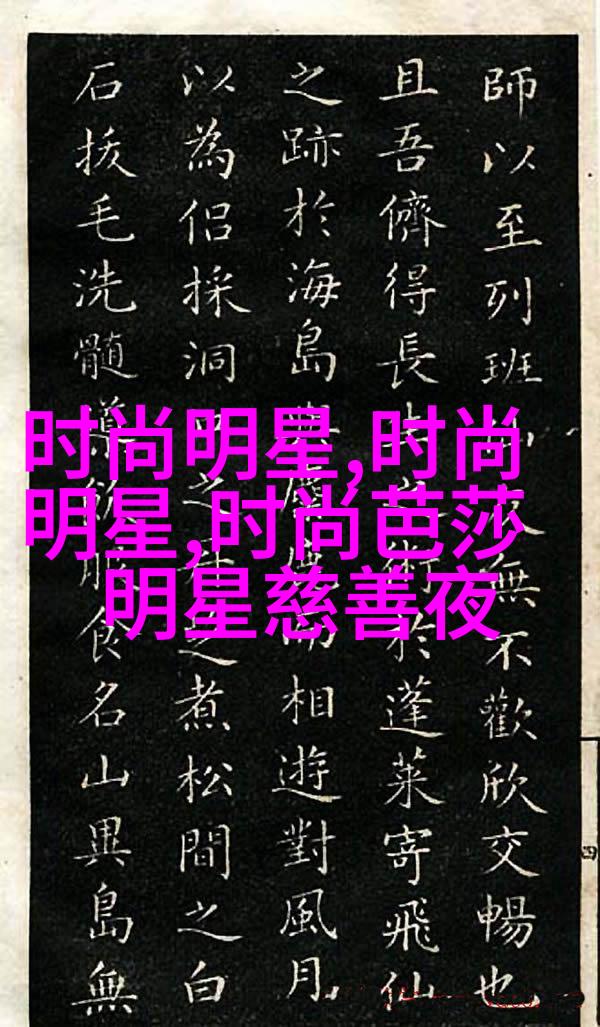 師以至列班無不歡欣交暢也
且吾儕得長術於蓬萊寄飛仙
之跡於海島與相遊對風月
以為侶採洞之煮松間之白
石拔毛洗髓導服食名山異島無
时尚明星,时尚
明星,时尚芭莎
明星慈善夜